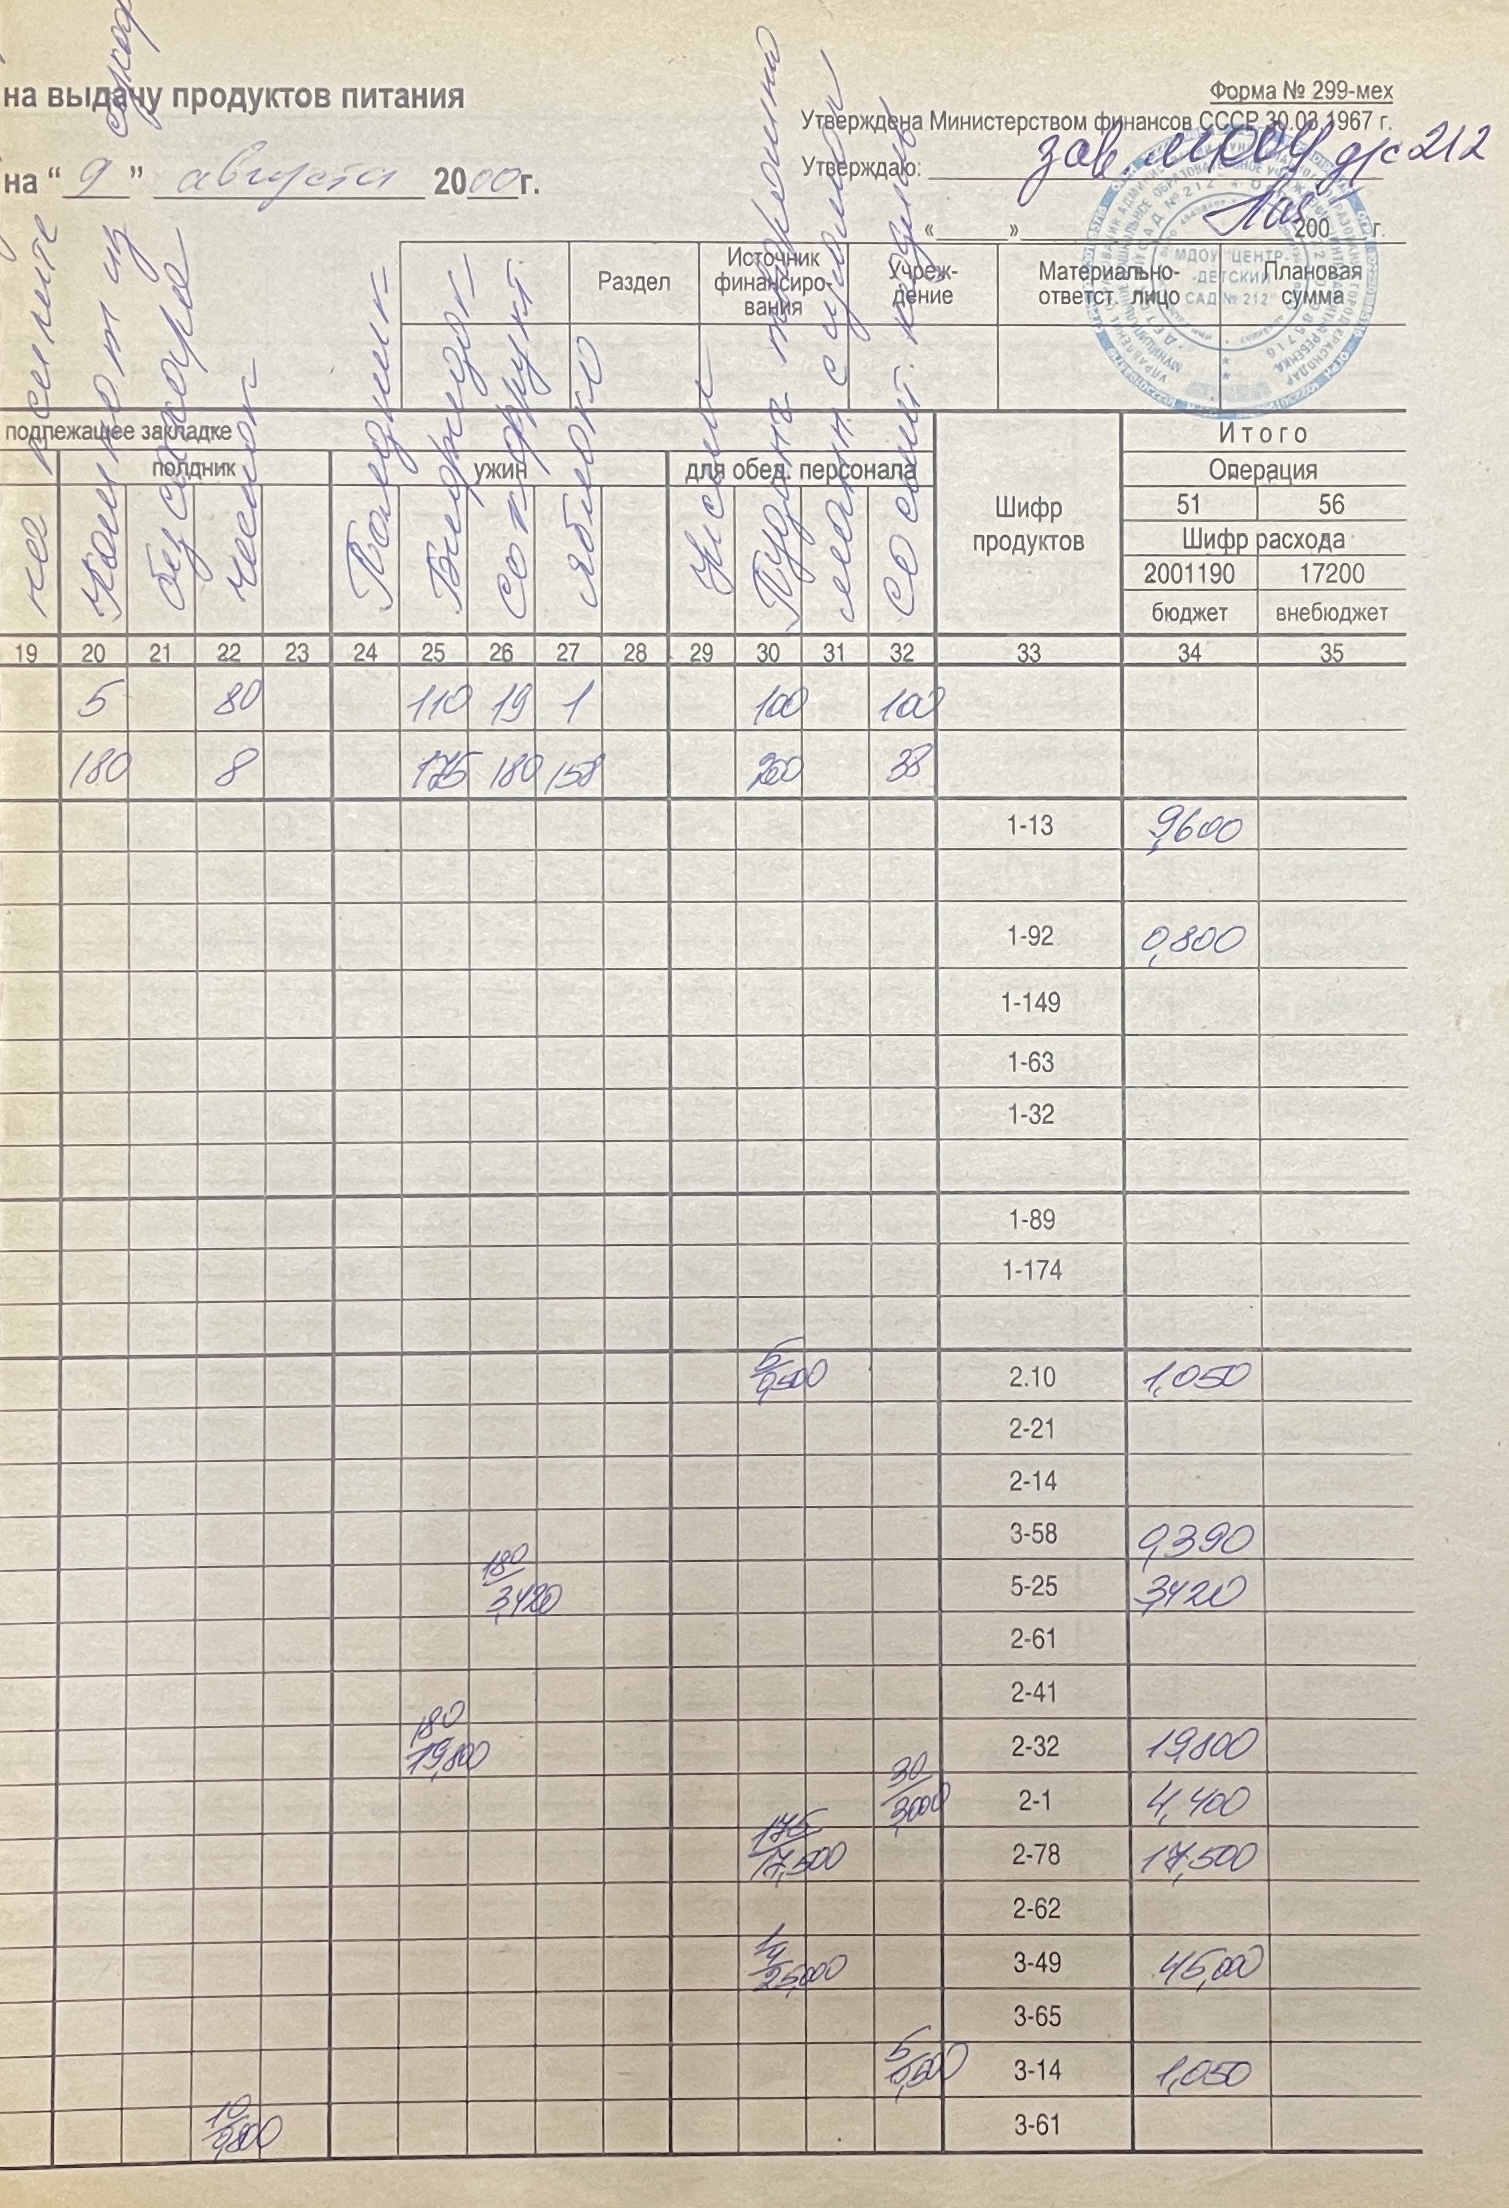 на выдачу продуктов питания
Форма № 299-мех
Утверждена Министерством финансов СССР 30.03.1967 г.
Утверждаю: зав МДОУ д/с 212
на “ 9 ” августа 2000г.
« » 200 г.
Раздел Источник финансиро-вания Учреж-дение Материально-ответст. лицо Плановая сумма
МДОУ "ЦЕНТР-
-ДЕТСКИЙ
САД № 212"
подлежащее закладке
Итого
полдник ужин для обед. персонала
Операция
Компот из
без сахара
чеснок
Полдник
сок фрукт.
яблоко
Ужин
Пудинг творожный
манн с
Шифр продуктов
51 56
Шифр расхода
2001190 17200
бюджет внебюджет
19 20 21 22 23 24 25 26 27 28 29 30 31 32 33 34 35
5 80 110 19 1 100 100
180 8 175 180 158 200 38
1-13 9,600
1-92 0,800
1-149
1-63
1-32
1-89
1-174
5
0,500 2.10 1,050
2-21
2-14
3-58 0,390
180
3,420 5-25 3,420
2-61
2-41
180
19,800 2-32 19,800
30
3,000 2-1 4,400
175
17,500 2-78 17,500
2-62
25,000 3-49 45,000
3-65
5
0,500 3-14 1,050
10
0,800 3-61